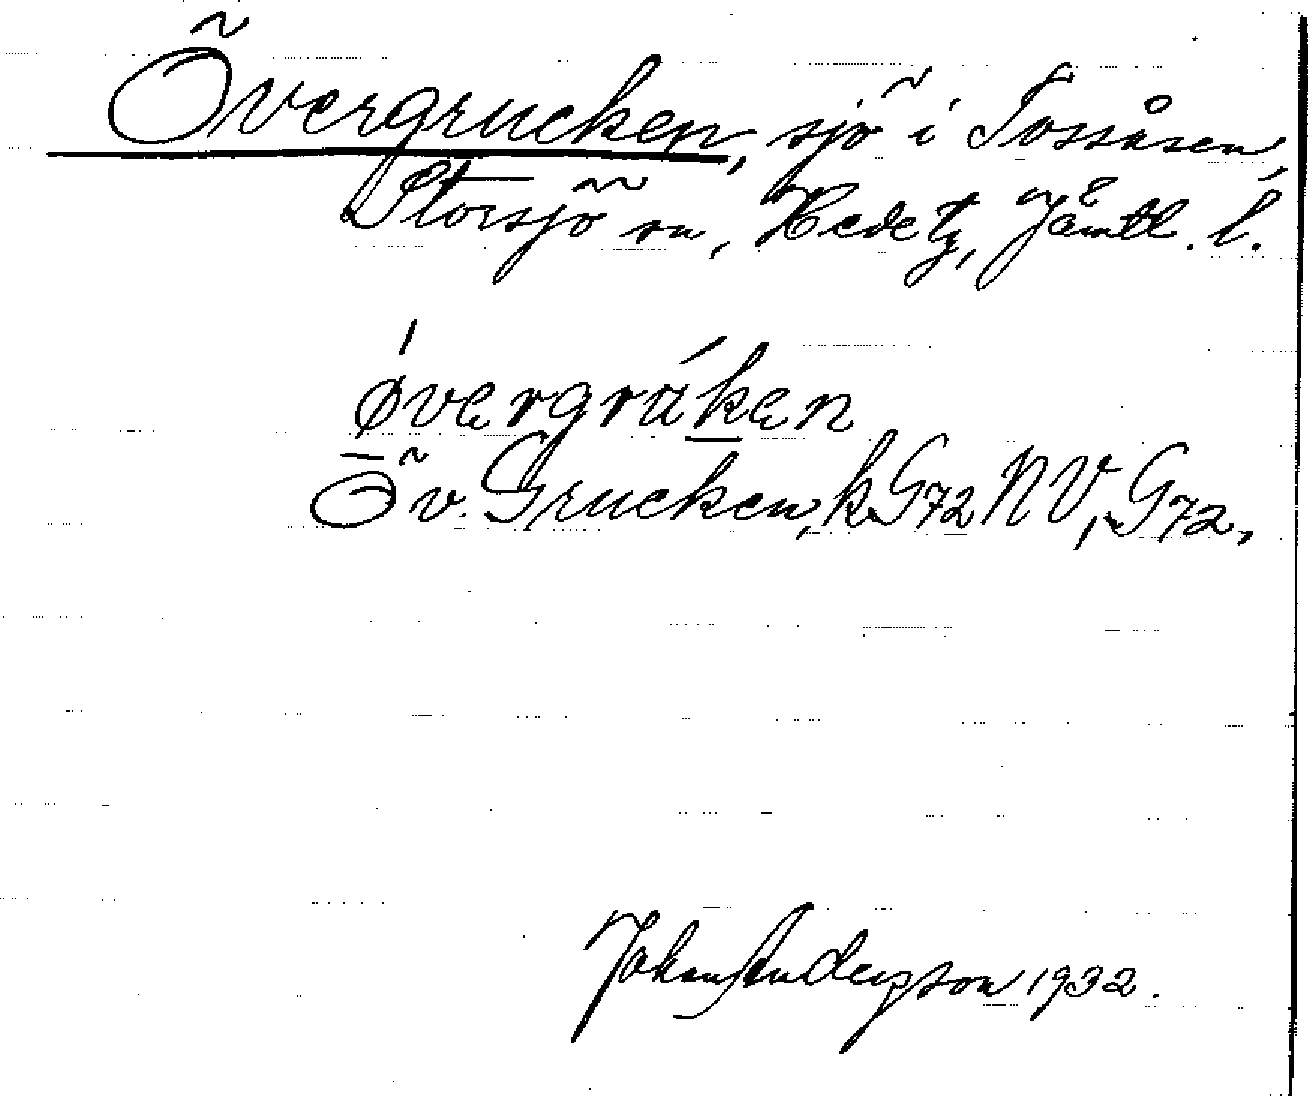 Övergrucken, sjö i Tossåsen,
Storsjö sn, Hede tg, Jämtl. l.
øvergrúken
Öv. Grucken, k G72 NV, G72.
Johan Anderzson 1932.